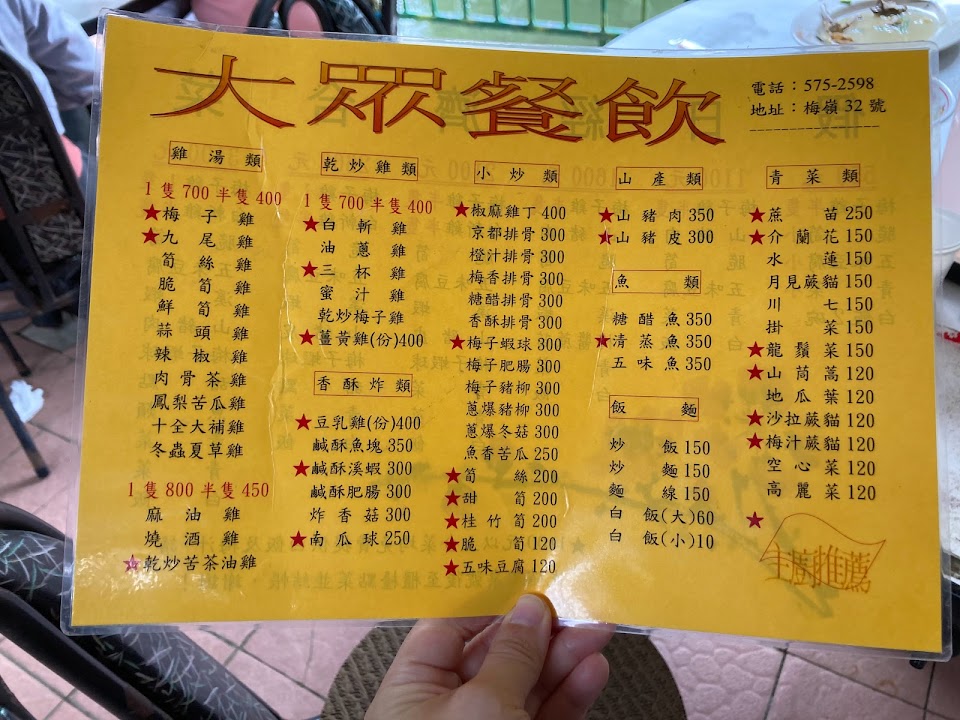 大眾餐飲
電話：575-2598
地址：梅嶺 32 號
雞湯類
1隻700半隻400
★梅子雞
★九尾雞
筍絲雞
脆筍雞
鮮筍雞
蒜頭雞
辣椒雞
肉骨茶雞
鳳梨苦瓜雞
十全大補雞
冬蟲夏草雞
1隻800半隻450
麻油雞
燒酒雞
★乾炒苦茶油雞
乾炒雞類
1隻700半隻400
★白斬雞
油蔥雞
★三杯雞
蜜汁雞
乾炒梅子雞
★薑黃雞(份)400
香酥炸類
★豆乳雞(份)400
鹹酥魚塊350
★鹹酥溪蝦300
鹹酥肥腸300
炸香菇300
★南瓜球250
小炒類
★椒麻雞丁400
京都排骨300
橙汁排骨300
梅香排骨300
糖醋排骨300
香酥排骨300
★梅子蝦球300
梅子肥腸300
梅子豬柳300
蔥爆豬柳300
蔥爆冬菇300
魚香苦瓜250
★筍絲200
★甜筍200
★桂竹筍200
★脆筍120
★五味豆腐120
山產類
★山豬肉350
★山豬皮300
魚類
糖醋魚350
★清蒸魚350
五味魚350
飯麵
炒飯150
炒麵150
麵線150
白飯(大)60
白飯(小)10
青菜類
★蔗苗250
★介蘭花150
水蓮150
月見蕨貓150
川七150
掛菜150
★龍鬚菜150
★山茼蒿120
地瓜葉120
★沙拉蕨貓120
★梅汁蕨貓120
空心菜120
高麗菜120
★
主廚推薦